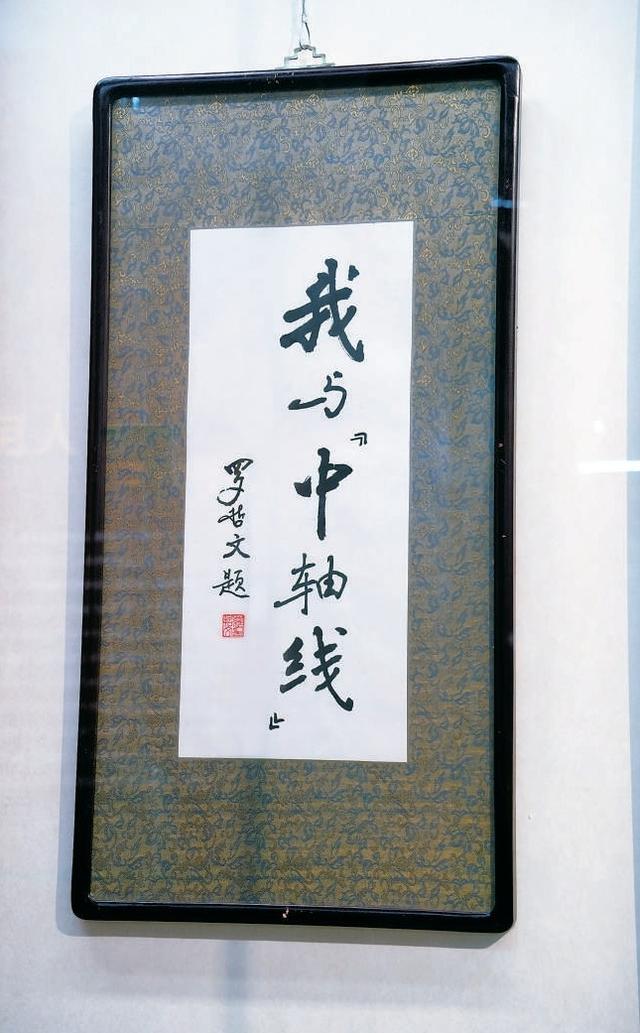 我与『中轴线』
罗哲文题